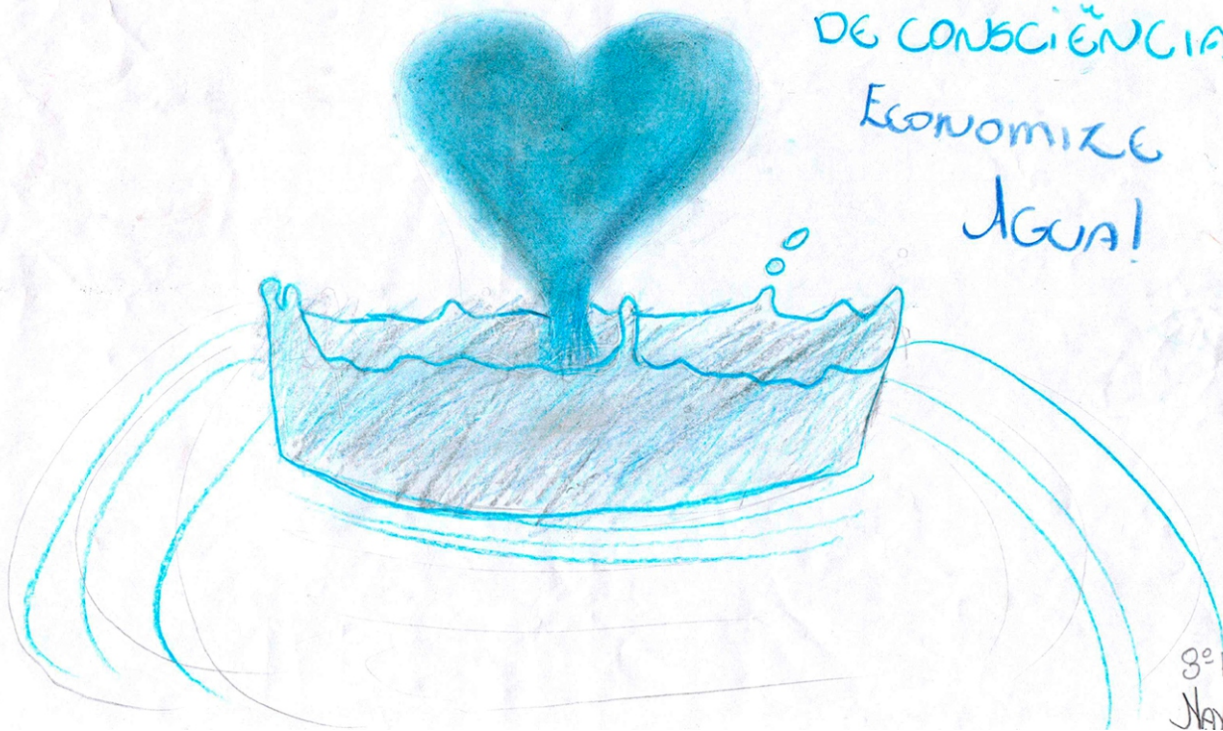 DE CONSCIÊNCIA
ECONOMIZE
ÁGUA!
8º